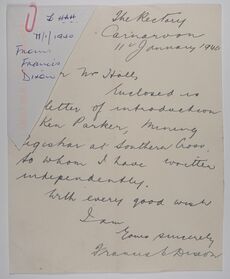 The Rectory
Carnarvon
11th January 1940
11/1/1940
From
Francis
Dixon
r Mr Holt,
Enclosed is
letter of introduction
Ken Parker, Mining
egistrar at Southern Cross,
to whom I have written
independently.
With every good wish
I am
Yours sincerely
Francis E Dixon